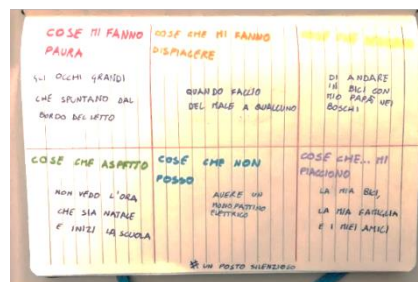 COSE MI FANNO
PAURA
GLI OCCHI GRANDI
CHE SPUNTANO DAL
BORDO DEL LETTO
COSE CHE MI FANNO
DISPIACERE
QUANDO FACCIO
DEL MALE A QUALCUNO
COSE CHE
DI ANDARE
IN BICI CON
MIO PAPÀ NEI
BOSCHI
COSE CHE ASPETTO
NON VEDO L'ORA
CHE SIA NATALE
E INIZI LA SCUOLA
COSE CHE NON
POSSO
AVERE UN
MONOPATTINO
ELETTRICO
COSE CHE... MI
PIACCIONO
LA MIA BICI,
LA MIA FAMIGLIA
E I MIEI AMICI
# UN POSTO SILENZIOSO